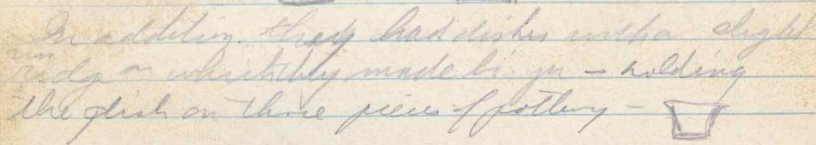 In addition they had dishes with a slight
rim
ridge on which they made by ju – holding
the dish on three pieces of pottery –